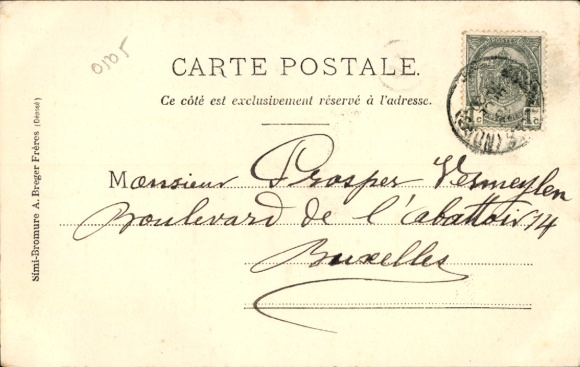 CARTE POSTALE.
Ce côté est exclusivement réservé à l'adresse.
Monsieur Prosper Vermeylen
Boulevard de l'abattoir 14
Bruxelles
Simi-Bromure A. Breger Frères (Déposé)
POSTES
1c